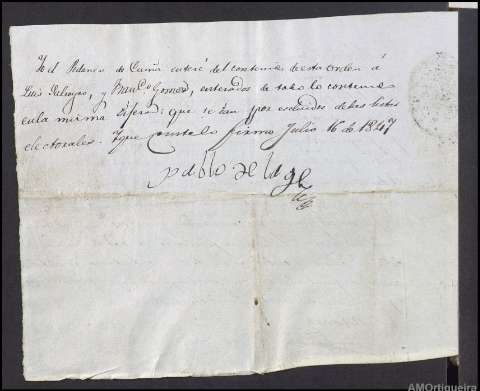 Yo el Pedaneo de Cuiña enteré del contenido de esta Orden á
Luis Galego, y Gomez, enterados de todo lo contenido
en la misma dijeron: que se dan por escluidos de las listas
electorales. Y que conste lo firmo Julio 16 de 1847
pablo de lage
AMOrtigueira